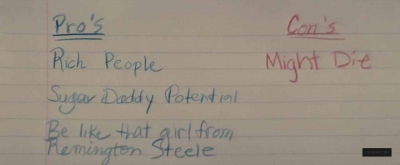 Pro's
Con's
Rich People
Might Die
Sugar Daddy Potential
Be like that girl from
Remington Steele